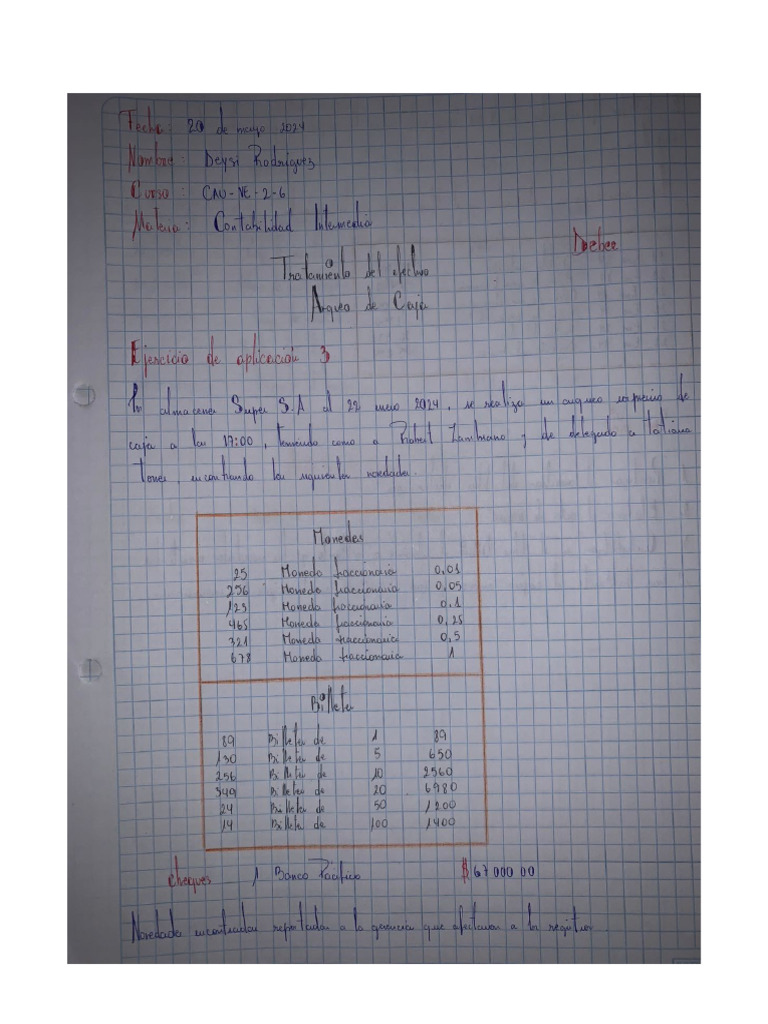 Fecha: 20 de mayo 2024
Nombre: Deysi Rodriguez
Curso: CAU-NE-2-6
Materia: Contabilidad Intermedia
Deber
Tratamiento del efectivo
Arqueo de Caja
Ejercicio de aplicación 3
En almacenes Super S.A al 22 2024, se realiza un arqueo de
caja a las 17:00, teniendo como a Robert Zambrano y de delegado a Tatiana
encontrando las siguientes novedades.
Monedas
25 Moneda fraccionaria 0,01
256 Moneda fraccionaria 0,05
123 Moneda fraccionaria 0,1
465 Moneda fraccionaria 0,25
321 Moneda fraccionaria 0,5
678 Moneda fraccionaria 1
Billetes
89 Billetes de 1 89
130 Billetes de 5 650
256 Billetes de 10 2560
349 Billetes de 20 6980
24 Billetes de 50 1200
14 Billetes de 100 1400
cheques 1 Banco Pacifico $67000 00
Novedades encontradas reportadas a la gerencia que afectaron a los registros